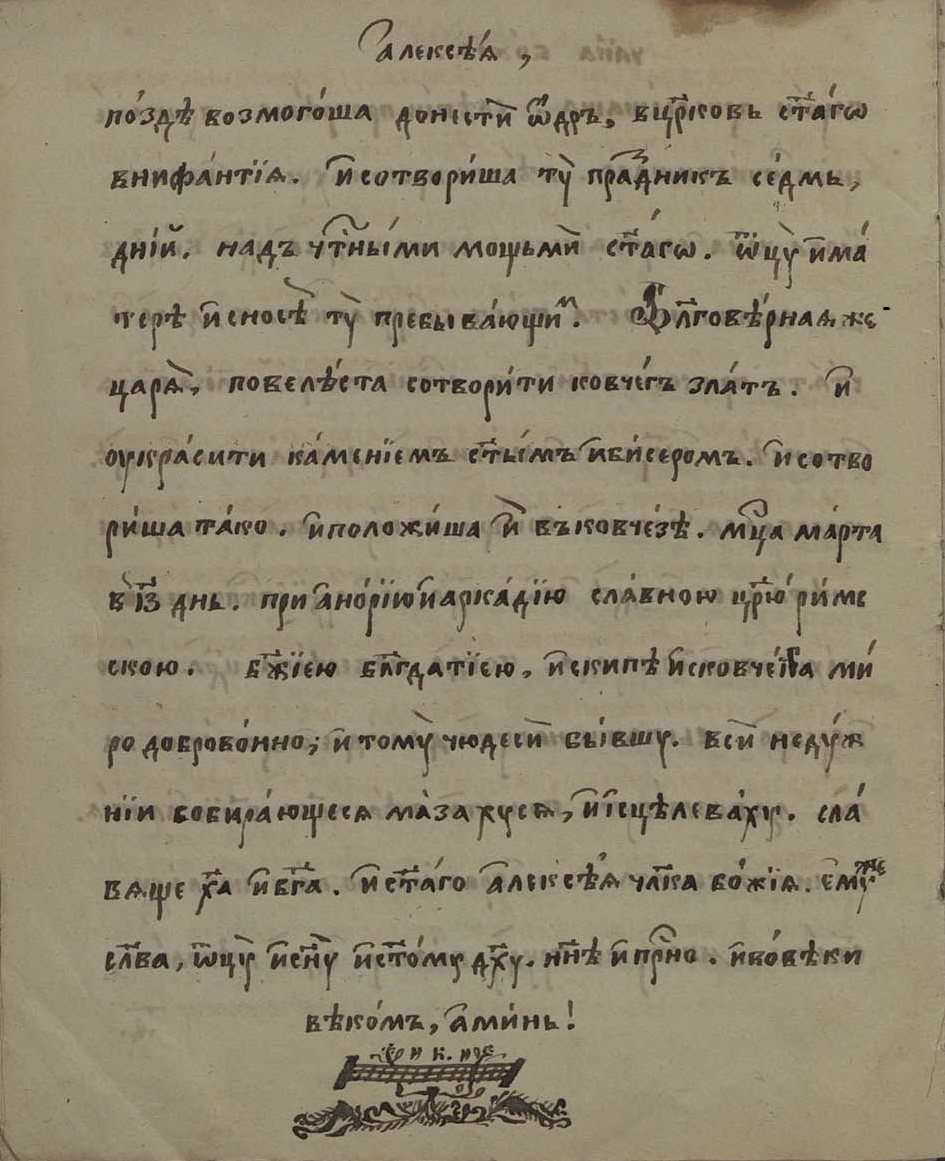 алексѣ́ꙗ,
по́здѣ возмого́ша донестѝ ѻ҆́дръ, вцр҃ковь ст҃а́гѡ
внифа́нтїѧ. и҆сотвори́ша тꙋ̀ пра́здникъ се́дмь,
дні́й. надъ чт҃ны́ми мощьмѝ ст҃а́гѡ. ѿцꙋ̀ и҆ма́
терѣ и҆сносѣ̀ тꙋ̀ пребыва́ющиⷨ. Бл҃говѣ́рнаѧ же
царѧ̀, повелѣ́ста сотвори́ти ковче́гъ зла́тъ. и҆
оукра́сити ка́менїемъ ст҃ы́мъ и҆би́серомъ. и҆сотво
ри́ша та́ко. и҆положи́ша и҆̀ въковче́зѣ. мц҃а ма́рта
в҃ і҃з днь. при а҆но́рїю и҆арка́дїю сла́вною цр҃ю́ ри́мс
скою. бж҃їею бл҃годатїею, и҆скипѣ и҆сковче́га ми́
ро доброво́нно; и҆ томꙋ̀ чюдесѝ бы́вшꙋ. всѝ недꙋ́ж
нїи собира́ющесѧ ма̀захꙋсѧ, и҆і҆сцѣлева́хꙋ. сла́
вѧще хр҃та и҆бг҃а. и҆ст҃а́го а҆лексѣ́ѧ чл҃ка бо́жїѧ. є҆мꙋ́же
сл҃ва, ѿцꙋ̀ и҆сн҃ꙋ̀ и҆ст҃о́мꙋ дх҃ꙋ. нн҃ѣ и҆при҃но. и҆во́вѣки
вѣко́мъ, а҆ми́нь!